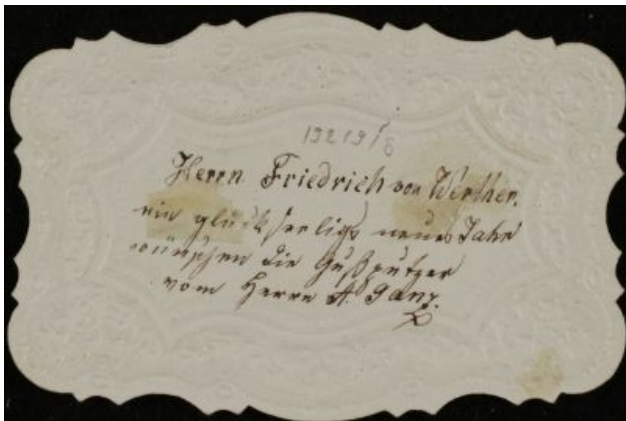 19219/8
Herrn Friedrich von Werther.
ein glückseeliges neues Jahr
wünschen die Gußputzer
vom Herrn A. Ganz.